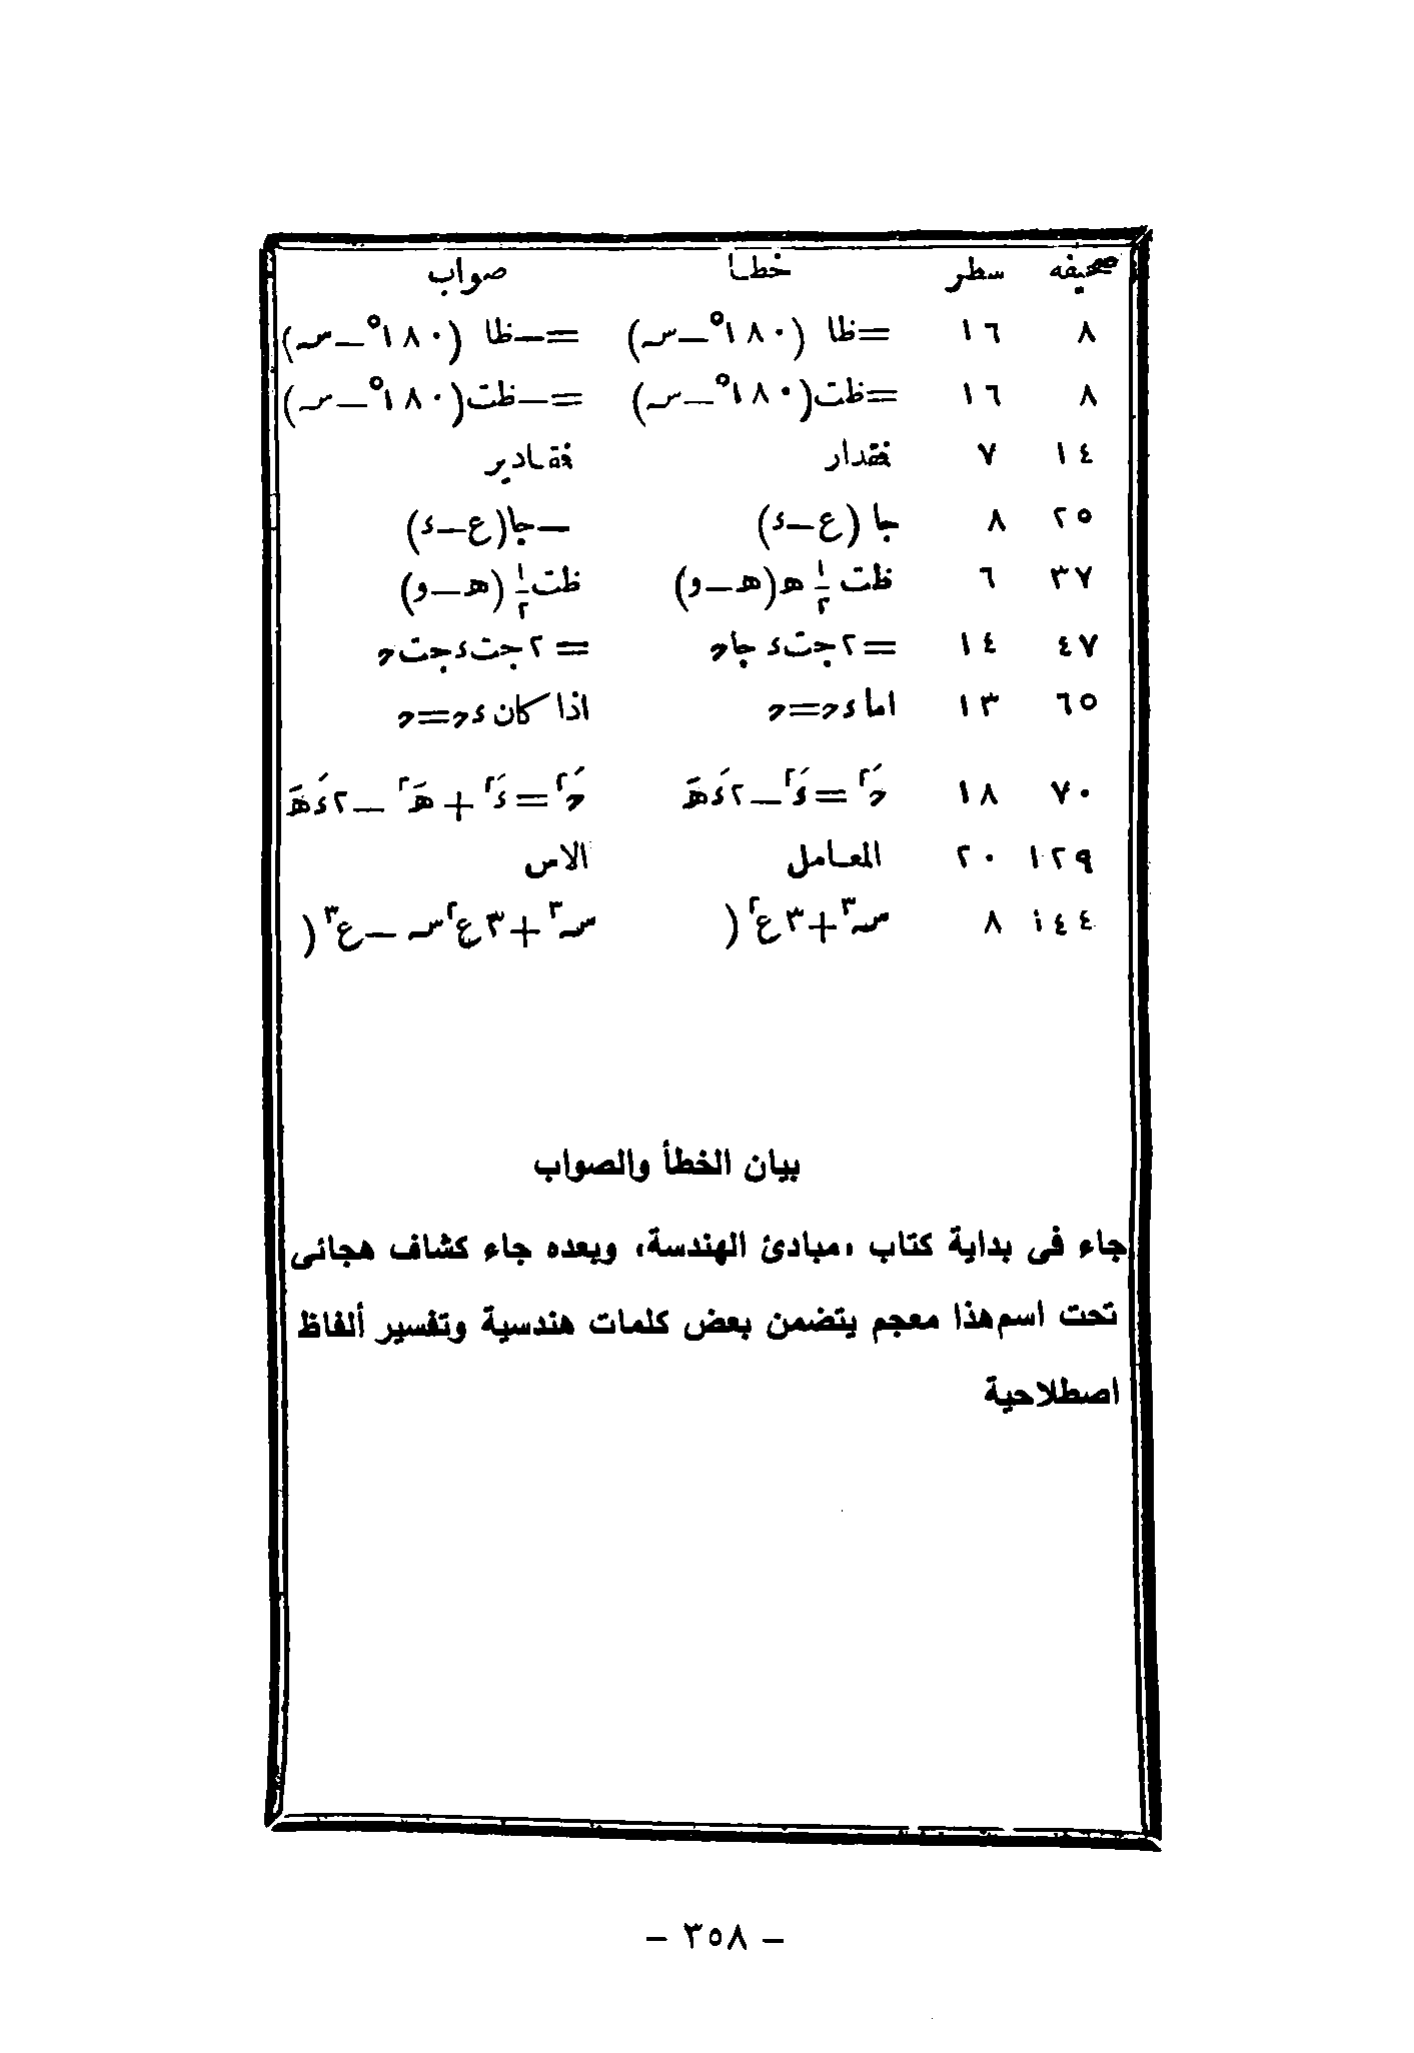 صحيفه سطر خطأ صواب
٨ ١٦ =ظا (١٨٠°-س) =-ظا (١٨٠°-س)
٨ ١٦ =ظت(١٨٠°-س) =-ظت(١٨٠°-س)
١٤ ٧ فقدار فقادير
٢٥ ٨ جا (ع-ء) -جا(ع-ء)
٣٧ ٦ ظت ١/٢ ه(ه-و) ظت ١/٢ (ه-و)
٤٧ ١٤ =٢جتء جاح =٢جتءجتح
٦٥ ١٣ اما ءح=ح اذا كان ءح=ح
٧٠ ١٨ حَ٢=ءَ٢-٢ءَهَ حَ٢=ءَ٢+هَ٢-٢ءَهَ
١٢٩ ٢٠ المعامل الاس
١٤٤ ٨ س٣+٣ع٢) س٣+٣ع٢س-ع٣)
بيان الخطأ والصواب
جاء فى بداية كتاب ،مبادئ الهندسة، وبعده جاء كشاف هجائى
تحت اسم هذا معجم يتضمن بعض كلمات هندسية وتفسير ألفاظ
اصطلاحية
- ٣٥٨ -